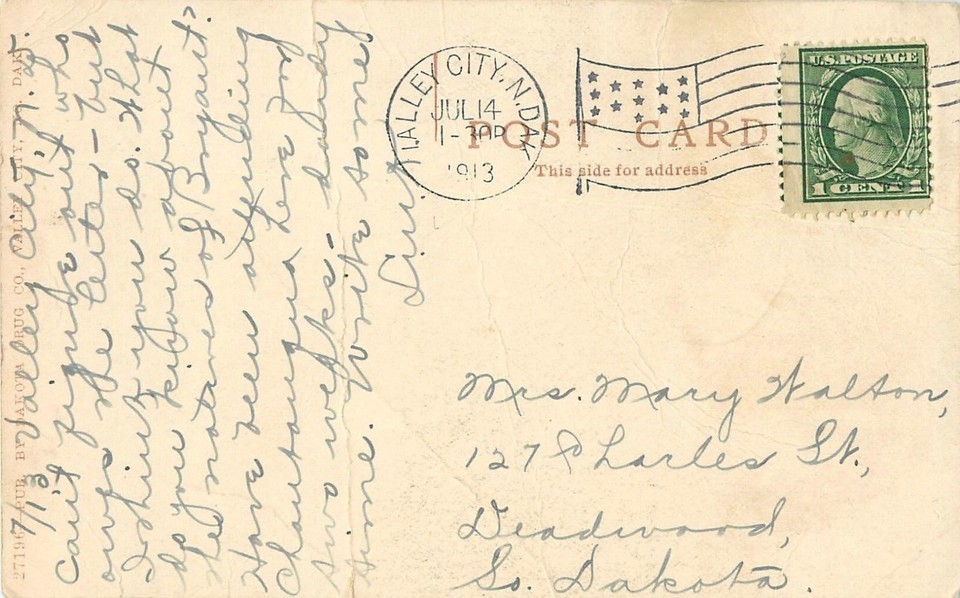 27196 PUB. BY DAKOTA DRUG CO., VALLEY CITY, N. DAK.
7/13 Valley City, N.D.
Can't figure out who
owns the Cutes - but
I think you do. What
do you know about
the natives of Bryant?
Have been attending
Chautauqua here for
two weks - a dandy
time. Write some
VALLEY CITY, N. DAK.
JUL 14
1-30P
1913
POST CARD
This side for address
U.S. POSTAGE
1 CENT 1
Mrs. Mary Walton,
127 Charles St.,
Deadwood,
So. Dakota.